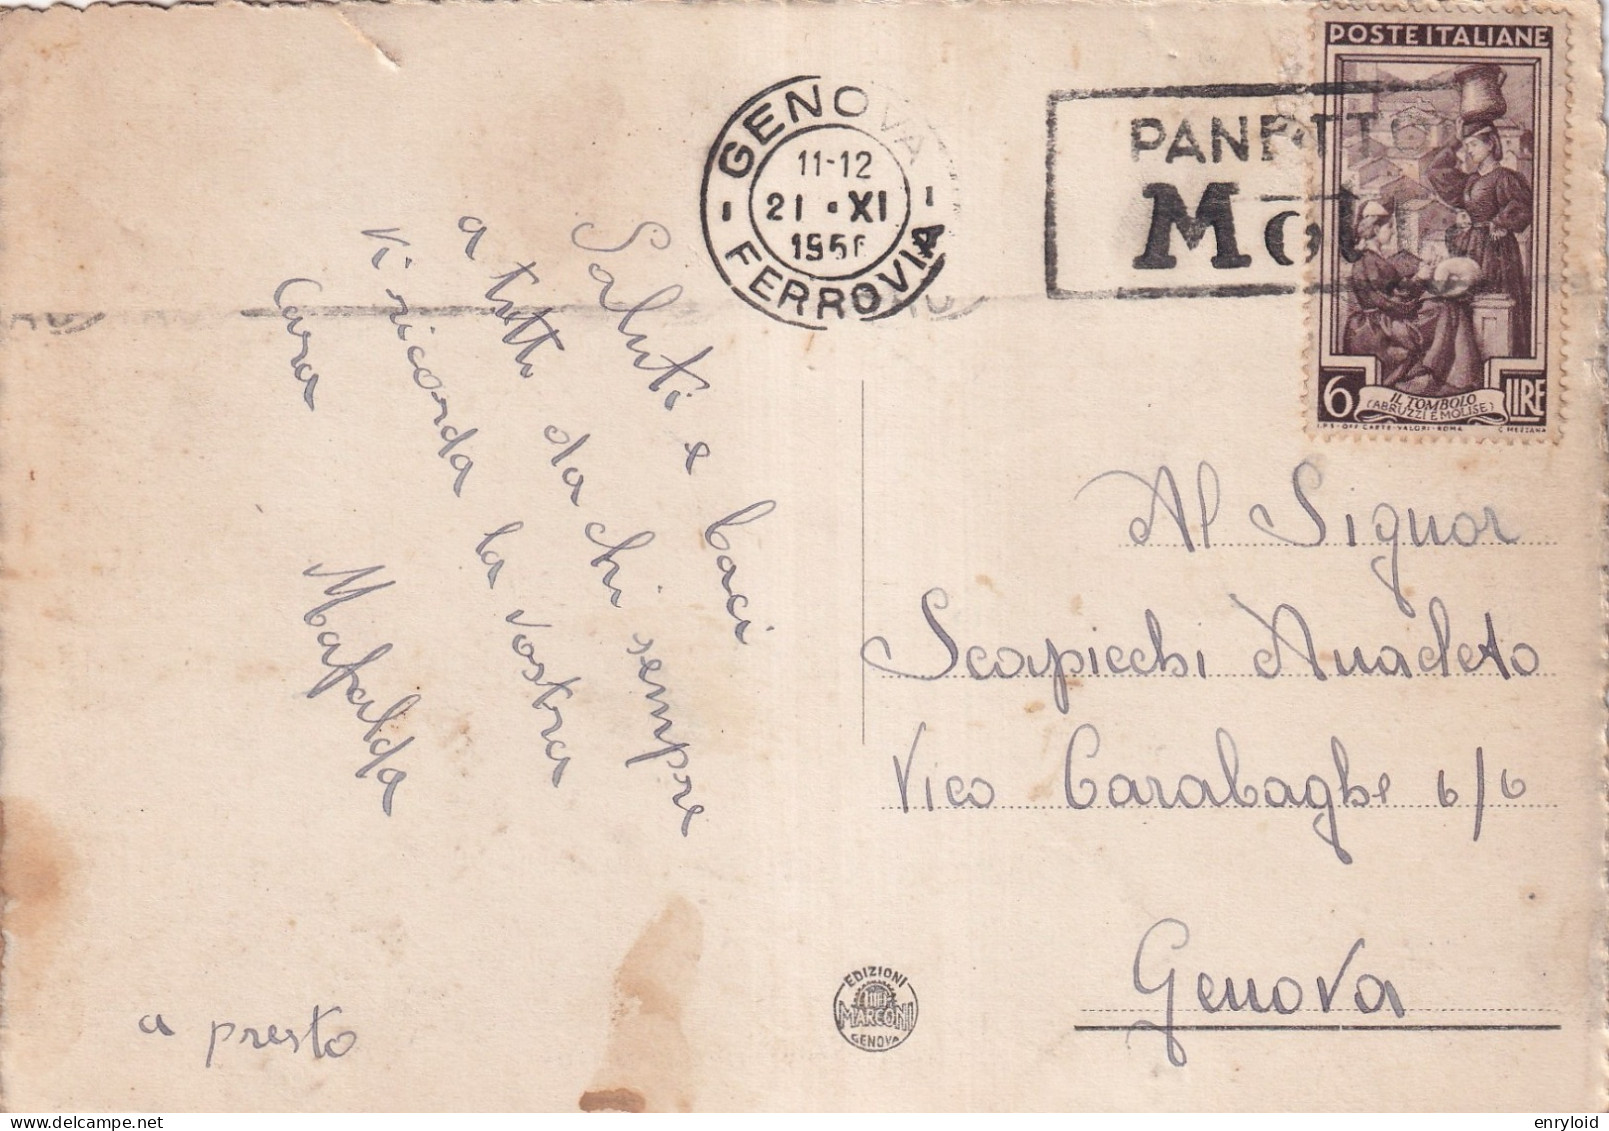 GENOVA
11-12
21 · XI
1956
FERROVIA
PANETTO
Mot
POSTE ITALIANE
6 LIRE
IL TOMBOLO
(ABRUZZI E MOLISE)
I.P.S-OFF CARTE-VALORI-ROMA C MEZZANA
Saluti e baci
a tutti da chi sempre
vi ricorda la vostra
Cara Mafalda
a presto
Al Signor
Scapicchi Anacleto
Vico Carabaghe 6/6
Genova
EDIZIONI
MARCONI
GENOVA
enryloid